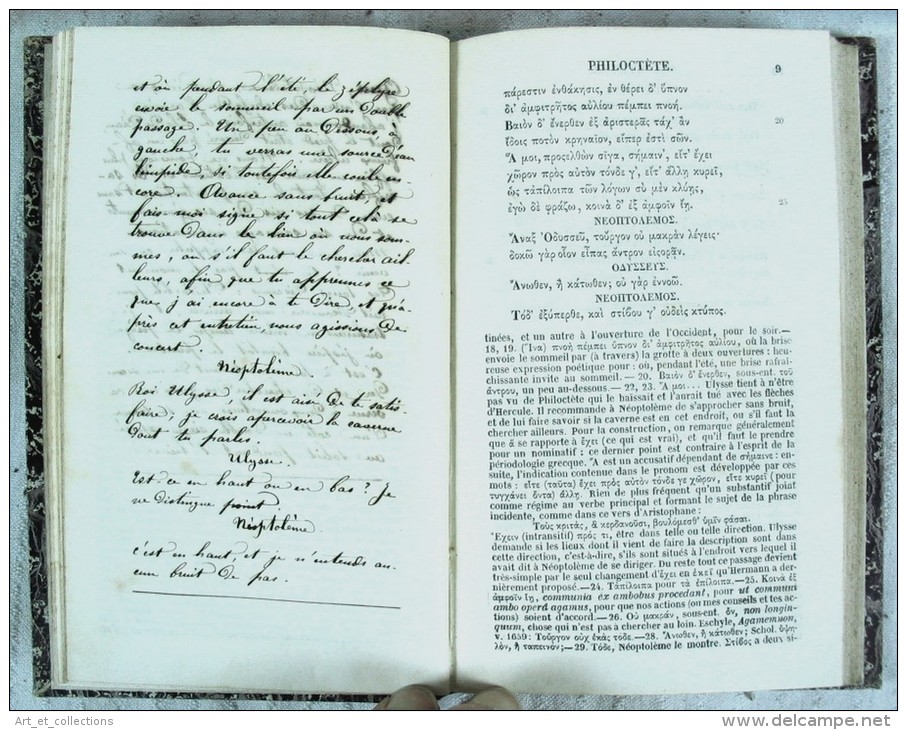 et où pendant l'été, le zéphyre
envoie le sommeil par un double
passage. Un peu au dessous, à
gauche, tu verras une source d'eau
limpide, si toutefois elle coule en-
core. Avance sans bruit, et
fais-moi signe si tout cela se
trouve dans le lieu où nous som-
mes, ou s'il faut le chercher ail-
leurs, afin que tu apprennes ce
que j'ai encore à te dire, et qu'a-
près cet entretien, nous agissions de
concert.
Néoptolème.
Roi Ulysse, il est aisé de te satis
faire; je crois apercevoir la caverne
dont tu parles.
Ulysse.
Est-ce en haut ou en bas? Je
ne distingue point.
Néoptolème
C'est en haut, et je n'entends au-
cun bruit de pas.
PHILOCTÈTE. 9
πάρεστιν ἐνθάκησις, ἐν θέρει δ' ὕπνον
δι' ἀμφιτρῆτος αὐλίου πέμπει πνοή.
Βαιὸν δ' ἔνερθεν ἐξ ἀριστερᾶς τάχ' ἂν 20
ἴδοις ποτὸν κρηναῖον, εἴπερ ἐστὶ σῶν.
Ἅ μοι, προσελθὼν σῖγα, σήμαιν', εἴτ' ἔχει
χῶρον πρὸς αὐτὸν τόνδε γ', εἴτ' ἄλλῃ κυρεῖ,
ὡς τἀπίλοιπα τῶν λόγων σὺ μὲν κλύῃς,
ἐγὼ δὲ φράζω, κοινὰ δ' ἐξ ἀμφοῖν ἴῃ. 25
ΝΕΟΠΤΟΛΕΜΟΣ.
Ἄναξ Ὀδυσσεῦ, τοὖργον οὐ μακρὰν λέγεις·
δοκῶ γὰρ οἷον εἶπας ἄντρον εἰςορᾶν.
ΟΔΥΣΣΕΥΣ.
Ἄνωθεν, ἢ κάτωθεν; οὐ γὰρ ἐννοῶ.
ΝΕΟΠΤΟΛΕΜΟΣ.
Τόδ' ἐξύπερθε, καὶ στίβου γ' οὐδεὶς κτύπος.
tinées, et un autre à l'ouverture de l'Occident, pour le soir.—
18, 19. (Ἵνα) πνοὴ πέμπει ὕπνον δι' ἀμφιτρῆτος αὐλίου, où la brise
envoie le sommeil par (à travers) la grotte à deux ouvertures : heu-
reuse expression poétique pour : où, pendant l'été, une brise rafraî-
chissante invite au sommeil. — 20. Βαιὸν δ' ἔνερθεν, sous-ent. τοῦ
ἄντρου, un peu au-dessous.— 22, 23. Ἅ μοι... Ulysse tient à n'être
pas vu de Philoctète qui le haïssait et l'aurait tué avec les flèches
d'Hercule. Il recommande à Néoptolème de s'approcher sans bruit,
et de lui faire savoir si la caverne est en cet endroit, ou s'il faut la
chercher ailleurs. Pour la construction, on remarque généralement
que ἃ se rapporte à ἔχει (ce qui est vrai), et qu'il faut le prendre
pour un nominatif : ce dernier point est contraire à l'esprit de la
périodologie grecque. Ἃ est un accusatif dépendant de σήμαινε: en-
suite, l'indication contenue dans le pronom est développée par ces
mots : εἴτε (ταῦτα) ἔχει πρὸς αὐτὸν τόνδε γε χῶρον, εἴτε κυρεῖ (pour
τυγχάνει ὄντα) ἄλλῃ. Rien de plus fréquent qu'un substantif joint
comme régime au verbe principal et formant le sujet de la phrase
incidente, comme dans ce vers d'Aristophane:
Τοὺς κριτὰς, ἃ κερδανοῦσι, βουλόμεσθ' ὑμῖν φάσαι.
Ἔχειν (intransitif) πρός τι, être dans telle ou telle direction. Ulysse
demande si les lieux dont il vient de faire la description sont dans
cette direction, c'est-à-dire, s'ils sont situés à l'endroit vers lequel il
avait dit à Néoptolème de se diriger. Du reste tout ce passage devient
très-simple par le seul changement d'ἔχει en ἐκεῖ qu'Hermann a der-
nièrement proposé.—24. Τἀπίλοιπα pour τὰ ἐπίλοιπα.—25. Κοινὰ ἐξ
ἀμφοῖν ἴῃ, communia ex ambobus procedant, pour ut communi
ambo operâ agamus, pour que nos actions (ou mes conseils et tes ac-
tions) soient d'accord.—26. Οὐ μακρὰν, sous-ent. ὂν, non longin-
quum, chose qui n'est pas à chercher au loin. Eschyle, Agamemnon,
v. 1659: Τοὖργον οὐχ ἑκὰς τόδε.—28. Ἄνωθεν, ἢ κάτωθεν; Schol. ὑψη-
λὸν, ἢ ταπεινόν;—29. Τόδε, Néoptolème le montre. Στίβος a deux si-
Art_et_collections
delcampe.net